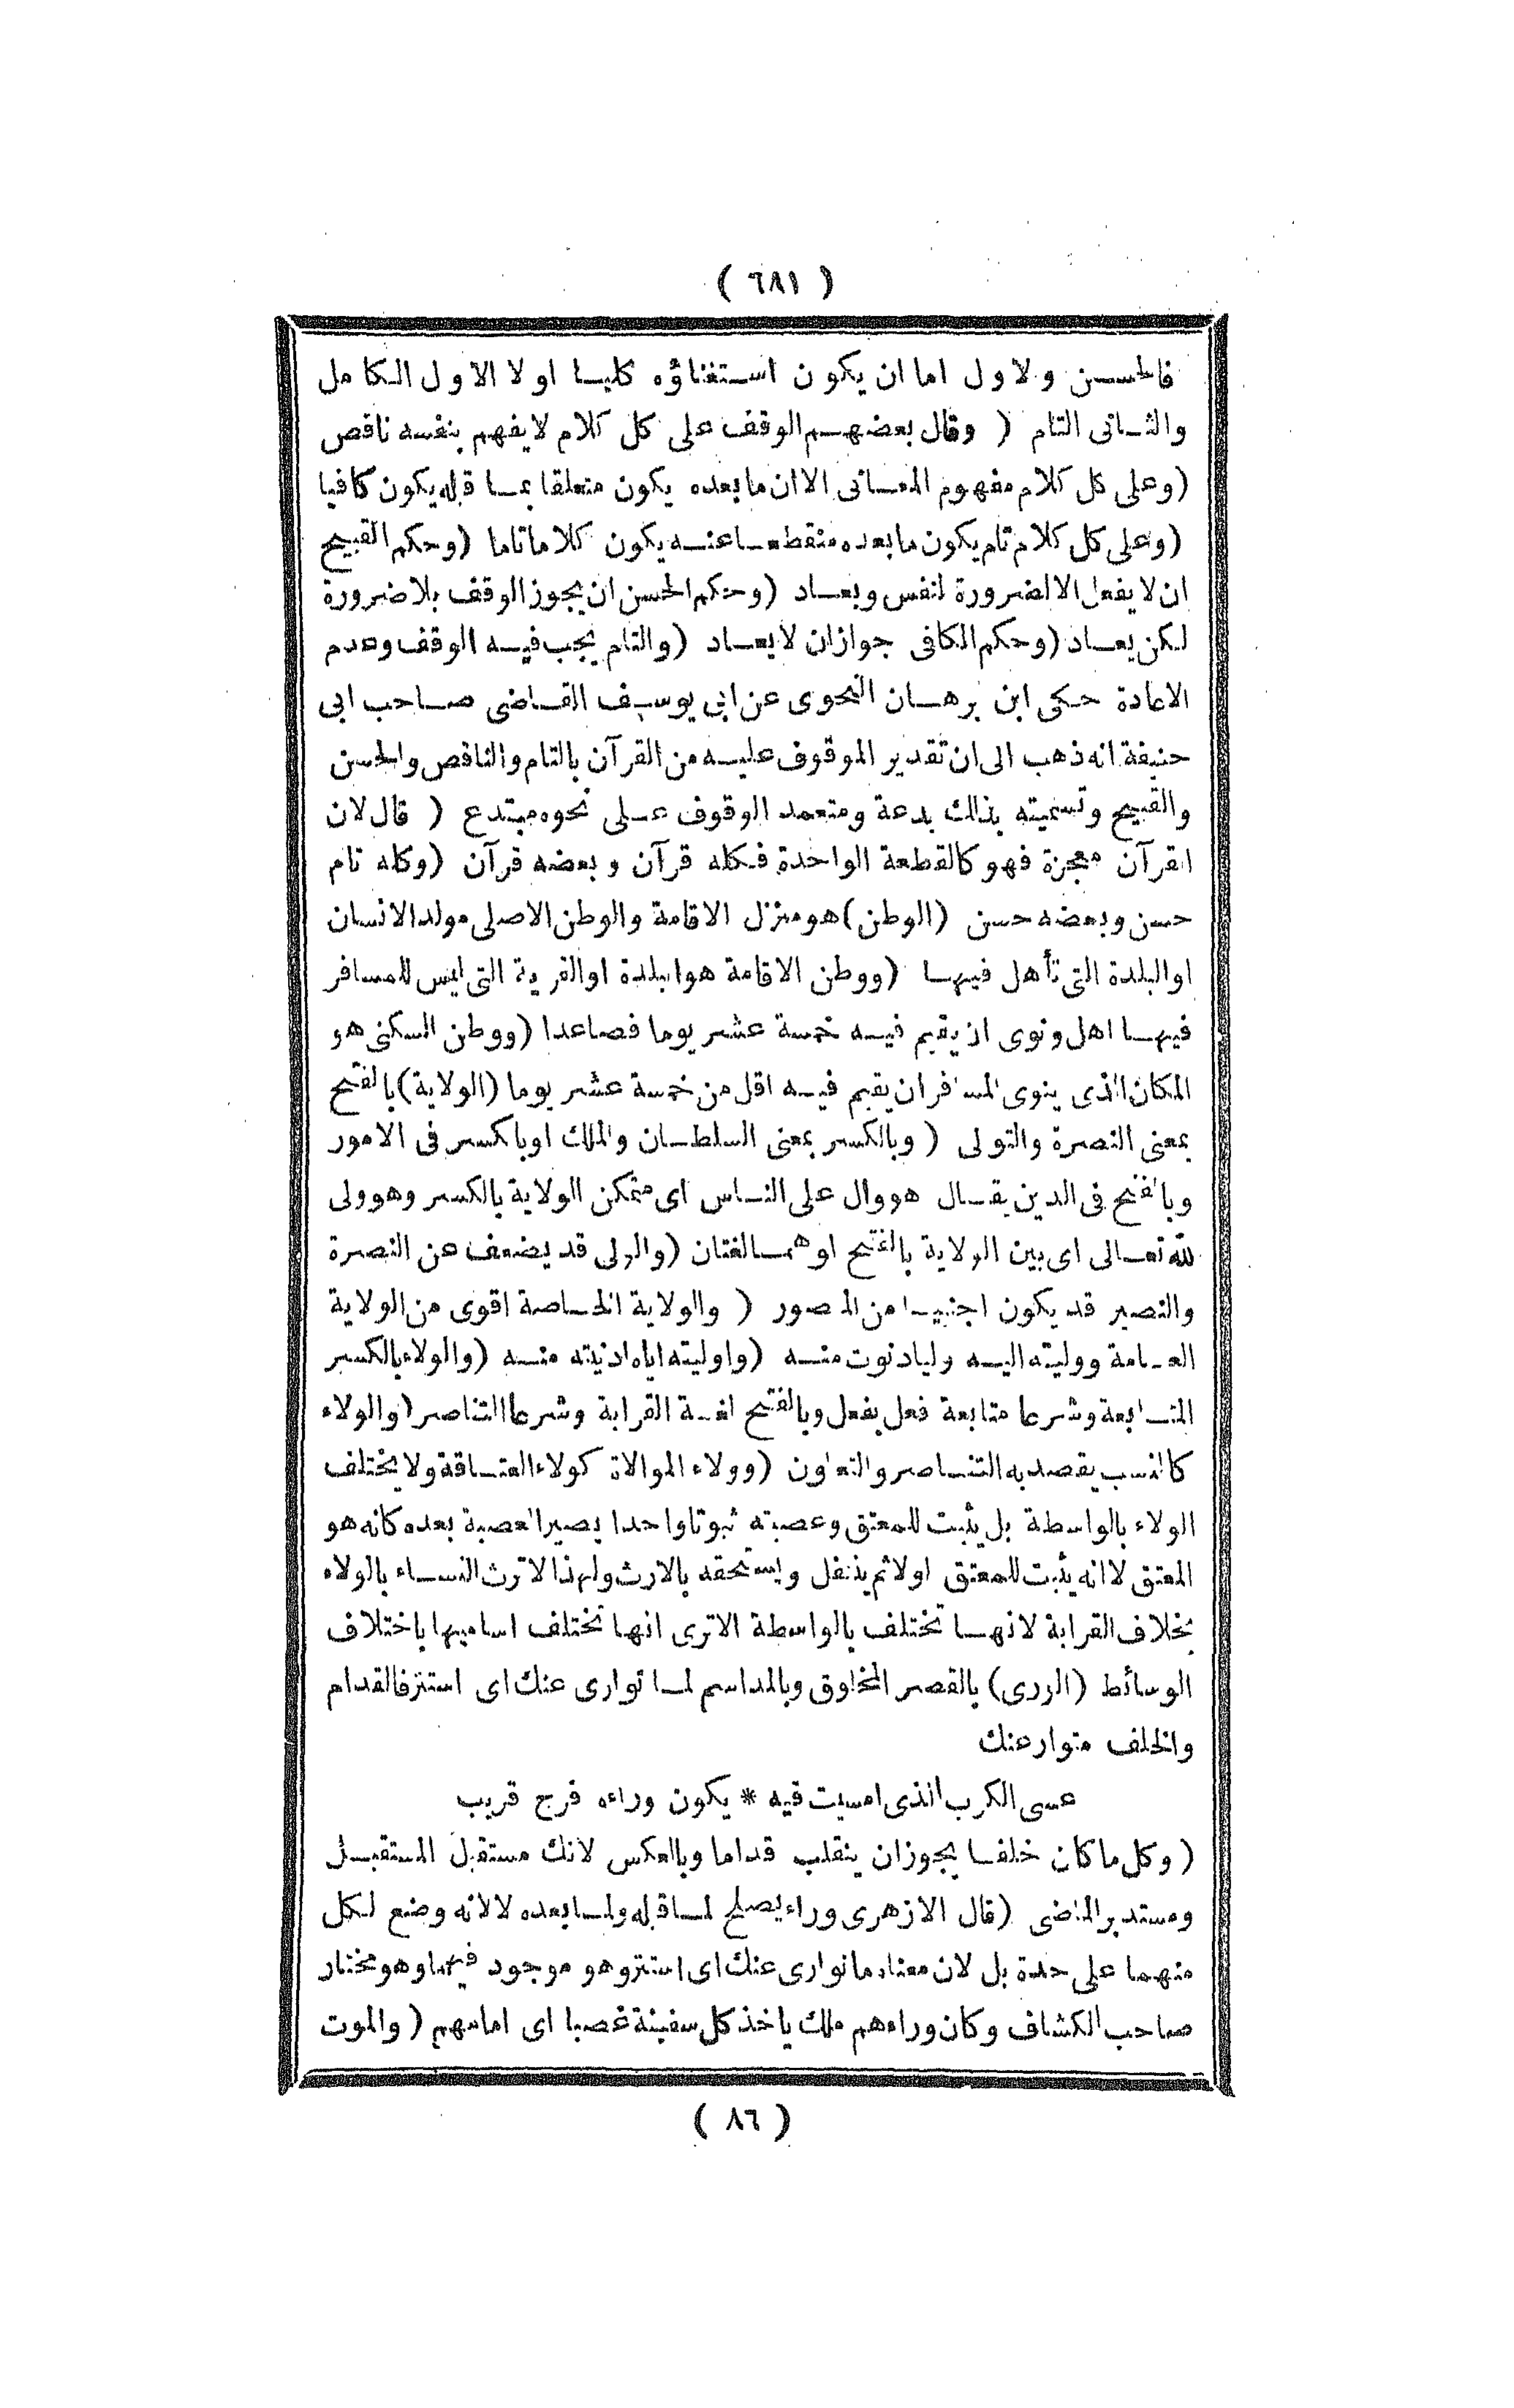 ( ٦٨١ )
فالحسن ولاول اما ان يكون استغناؤه كليا اولا الاول الكامل
والثانى التام ( وقال بعضهم الوقف على كل كلام لايفهم بنفسه ناقص
(وعلى كل كلام مفهوم المعانى الا ان مابعده يكون متعلقا بما قبله يكون كافيا
(وعلى كل كلام تام يكون مابعده منقطعا عنه يكون كلاما تاما (وحكم القبيح
ان لايفعل الالضرورة لنفس ويعاد (وحكم الحسن ان يجوز الوقف بلاضرورة
لكن يعاد (وحكم الكافى جوازان لايعاد (والتام يجب فيه الوقف وعدم
الاعادة حكى ابن برهان النحوى عن ابى يوسف القاضى صاحب ابى
حنيفة انه ذهب الى ان تقدير الموقوف عليه من القرآن بالتام والناقص والحسن
والقبيح وتسميته بذلك بدعة ومتعمد الوقوف على نحوه مبتدع ( قال لان
القرآن معجزة فهو كالقطعة الواحدة فكله قرآن وبعضه قرآن (وكله تام
حسن وبعضه حسن (الوطن) هو منزل الاقامة والوطن الاصلى مولد الانسان
اوالبلدة التى تأهل فيها (ووطن الاقامة هو البلدة اوالقرية التى ليس للمسافر
فيها اهل ونوى ان يقيم فيه خمسة عشر يوما فصاعدا (ووطن السكنى هو
المكان الذى ينوى المسافر ان يقيم فيه اقل من خمسة عشر يوما (الولاية) بالفتح
بمعنى النصرة والتولى ( وبالكسر بمعنى السلطان والملك اوبالكسر فى الامور
وبالفتح فى الدين يقال هو وال على الناس اى متمكن الولاية بالكسر وهو ولى
لله تعالى اى بين الولاية بالفتح اوهما لغتان (والولى قد يضعف عن النصرة
والنصير قد يكون اجنبيا من المنصور ( والولاية الخاصة اقوى من الولاية
العامة ووليته اليه وليادنوت منه (واوليته اياه ادنيته منه (والولاء بالكسر
المتابعة وشرعا متابعة فعل بفعل وبالفتح لغة القرابة وشرعا التناصر (والولاء
كالنسب يقصد به التناصر والتعاون (وولاء الموالاة كولاء العتاقة ولايختلف
الولاء بالواسطة بل يثبت للمعتق وعصبته ثبوتا واحدا يصير العصبة بعده كانه هو
المعتق لا انه يثبت للمعتق اولا ثم ينتقل ويستحقه بالارث ولهذا لاترث النساء بالولاء
بخلاف القرابة لانها تختلف بالواسطة الاترى انها تختلف اساميها باختلاف
الوسائط (الورى) بالقصر المخلوق وبالمد اسم لما توارى عنك اى استتر فالقدام
والخلف متوار عنك
عسى الكرب الذى امسيت فيه * يكون وراءه فرج قريب
(وكل ماكان خلفا يجوزان ينقلب قداما وبالعكس لانك مستقبل المستقبل
ومستدبر الماضى (قال الازهرى وراء يصلح لما قبله ولما بعده لالانه وضع لكل
منهما على حدة بل لان معناه ماتوارى عنك اى استتر وهو موجود فيهما وهو مختار
صاحب الكشاف وكان وراءهم ملك ياخذ كل سفينة غصبا اى امامهم (والموت
( ٨٦ )